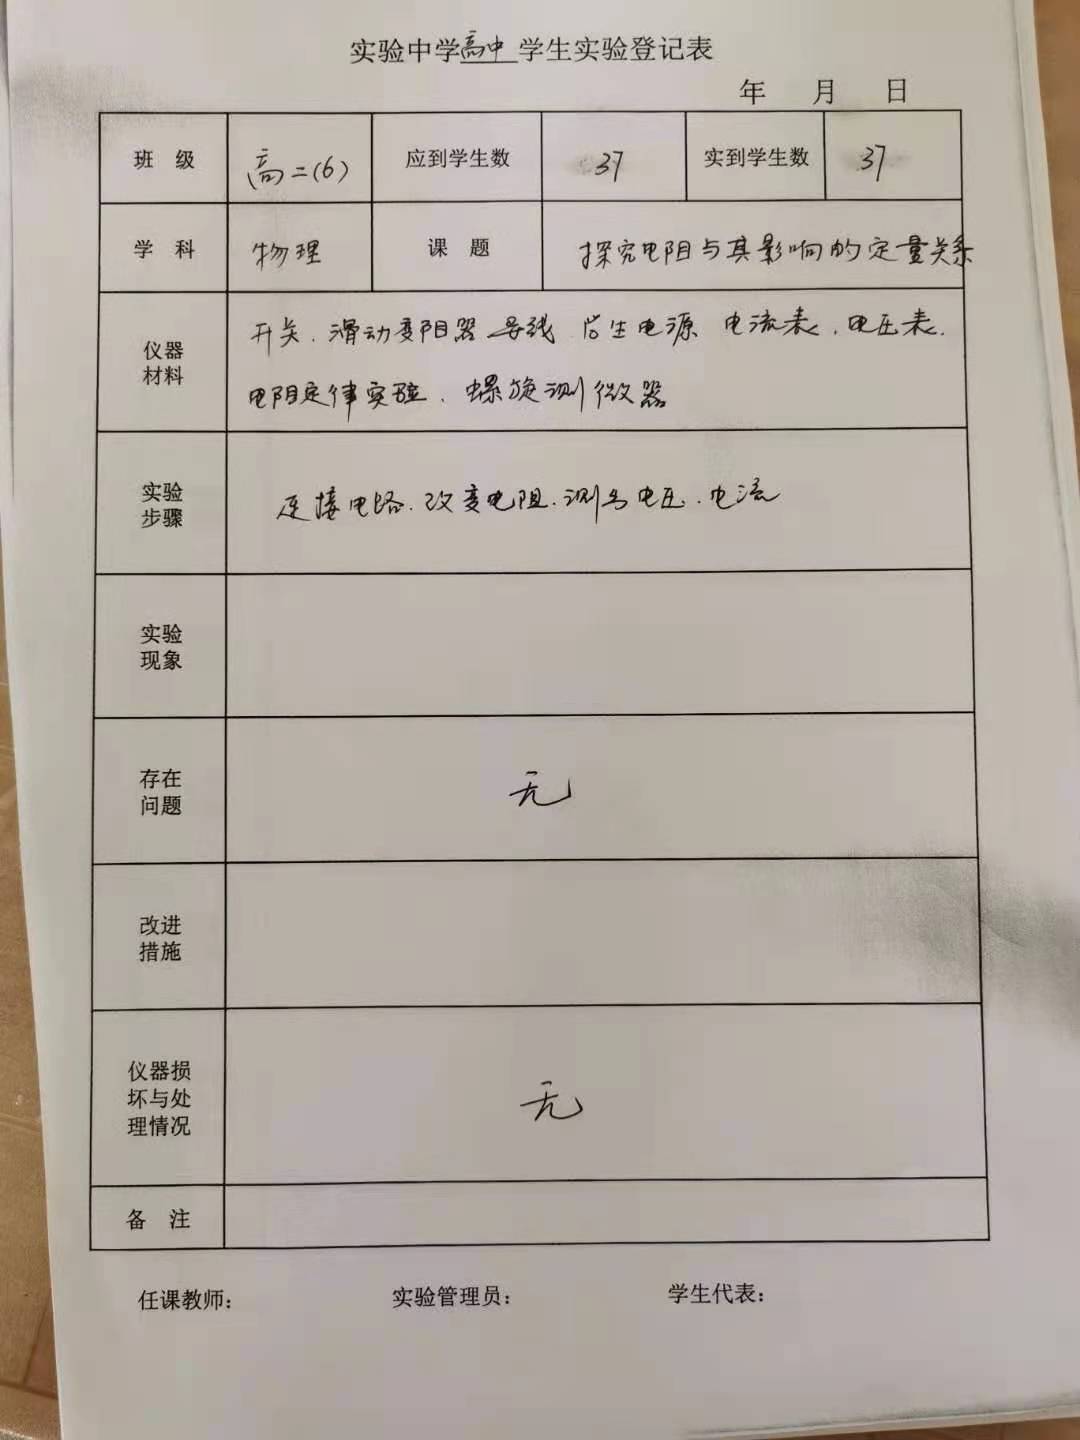 实验中学高中学生实验登记表
年 月 日
班 级 高二(6) 应到学生数 37 实到学生数 37
学 科 物理 课 题 探究电阻与其影响的定量关系
仪器
材料
开关.滑动变阻器 导线.学生电源 电流表.电压表.
电阻定律实验.螺旋测微器
实验
步骤
连接电路.改变电阻.测出电压.电流
实验
现象
存在
问题
无
改进
措施
仪器损
坏与处
理情况
无
备 注
任课教师: 实验管理员: 学生代表: